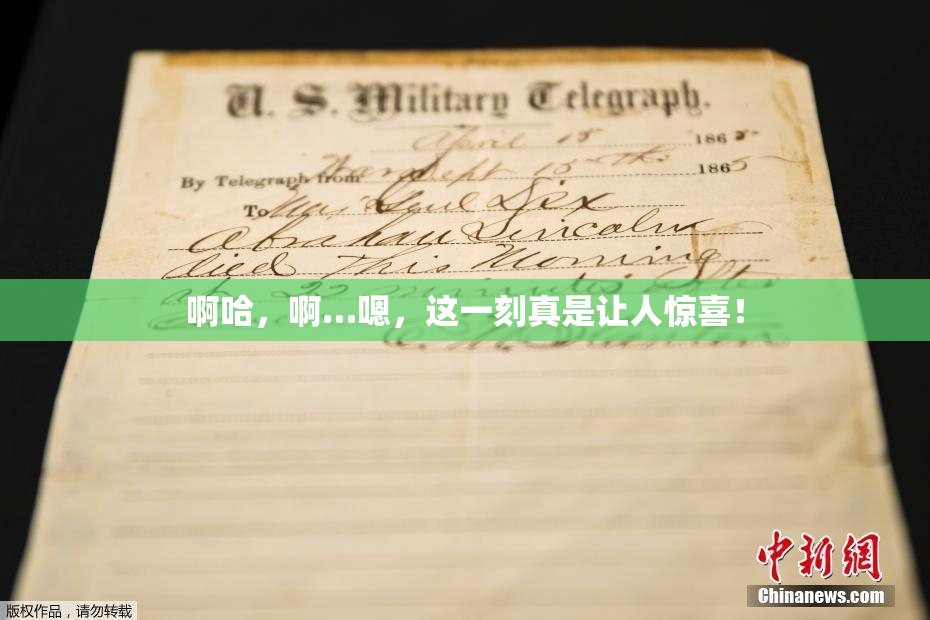 U. S. Military Telegraph.
April 15 1865
By Telegraph from War Dept 15th 1865
To Maj Genl Dix
Abraham Lincoln
died This Morning
at 22 minutes after
啊哈，啊...嗯，这一刻真是让人惊喜！
E. M. Stanton
中新网
Chinanews.com
版权作品，请勿转载